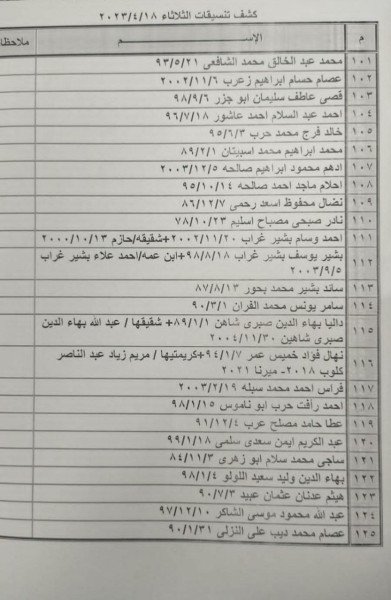 كشف تنسيقات الثلاثاء ٢٠٢٣/٤/١٨
م الإســـــــم ملاحظا
١٠١ محمد عبد الخالق محمد الشافعي ٩٣/٥/٢١
١٠٢ عصام حسام ابراهيم زعرب ٢٠٠٢/١١/٦
١٠٣ قصي عاطف سليمان ابو جزر ٩٨/٩/٦
١٠٤ احمد عبد السلام احمد عاشور ٩٦/٧/١٨
١٠٥ خالد فرج محمد حرب ٩٥/٦/٣
١٠٦ محمد ابراهيم محمد اسبيتان ٨٩/٢/١
١٠٧ ادهم محمود ابراهيم صالحه ٢٠٠٣/١٢/٥
١٠٨ احلام ماجد احمد صالحه ٩٥/١٠/١٤
١٠٩ نضال محفوظ اسعد رحمى ٨٦/١٢/٧
١١٠ نادر صبحي مصباح اسليم ٧٨/١٠/٢٣
١١١ احمد وسام بشير غراب ٢٠٠٢/١١/٢٠+شقيقه/حازم ٢٠٠٠/١٠/١٣
١١٢ بشير يوسف بشير غراب ٩٨/٨/١٨+ابن عمه/احمد علاء بشير غراب
٢٠٠٣/٩/٥
١١٣ سائد بشير محمد بحور ٨٧/٨/١٣
١١٤ سامر يونس محمد الفران ٩٠/٣/١
١١٥ داليا بهاء الدين صبرى شاهن ٨٩/١/١+ شقيقها / عبد الله بهاء الدين
صبرى شاهين ٢٠٠٤/١١/٣٠
١١٦ نهال فؤاد خميس عمر ٩٤/١/٧+كريمتيها / مريم زياد عبد الناصر
كلوب ٢٠١٨- ميرنا ٢٠٢١
١١٧ فراس احمد محمد سبله ٢٠٠٣/٢/١٩
١١٨ احمد رأفت حرب ابو ناموس ٩٨/١/١٥
١١٩ عطا حامد مصلح عرب ٩١/١٢/٤
١٢٠ عبد الكريم ايمن سعدى سلمى ٩٩/١/١٨
١٢١ ساجى محمد سلام ابو زهرى ٨٤/١١/٣
١٢٢ بهاء الدين وليد سعيد اللولو ٩٨/١/٤
١٢٣ هيثم عدنان عثمان عبيد ٩٠/٧/٣
١٢٤ عبد الله محمود موسى الشاكر ٩٧/١٢/١٠
١٢٥ عصام محمد ديب على النزلى ٩٠/١/٣١